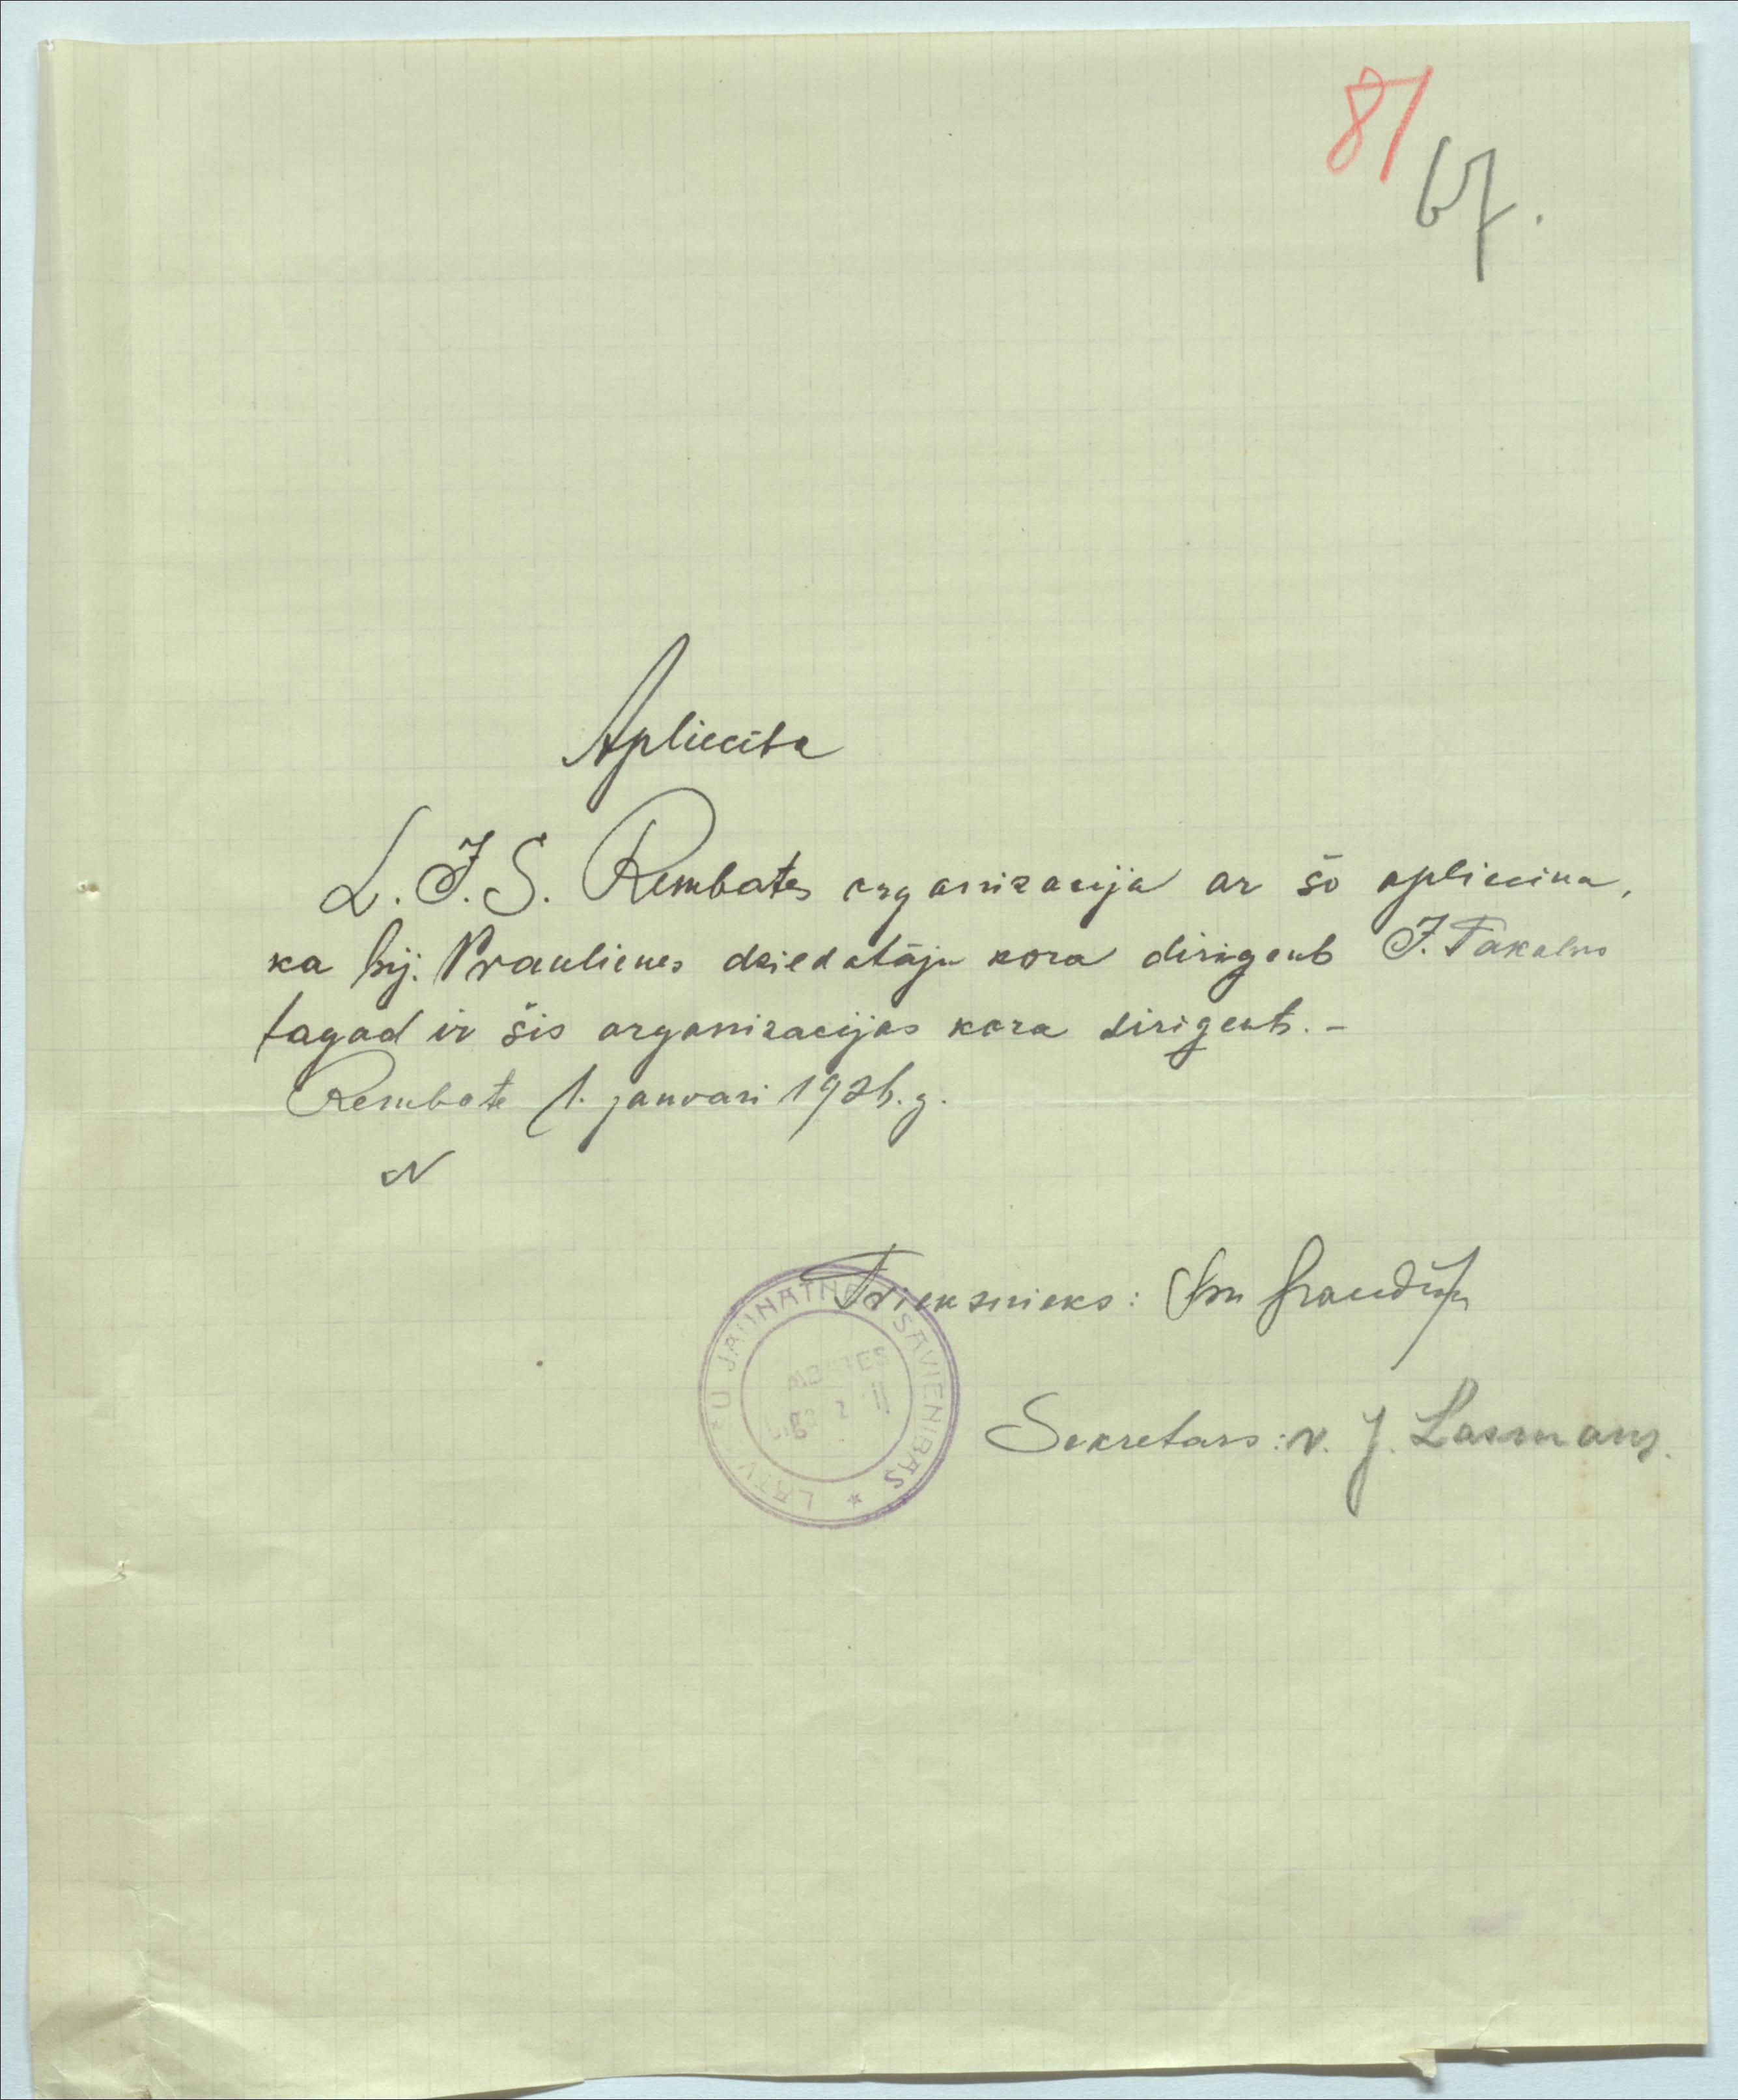 81
67.
Apliecība
L. J. S. Rembates organizacija ar šo apliecina,
ka bij. Praulienes dziedatāju kora dirigents J. Pakalns
tagad ir šis organizacijas kora dirigents. –
Rembate 1. janvari 1926. g.
N
Prieksnieks:
Sekretars: v. J. Lasmans.
LATV EU JAUNATNES SAVIENIBAS *